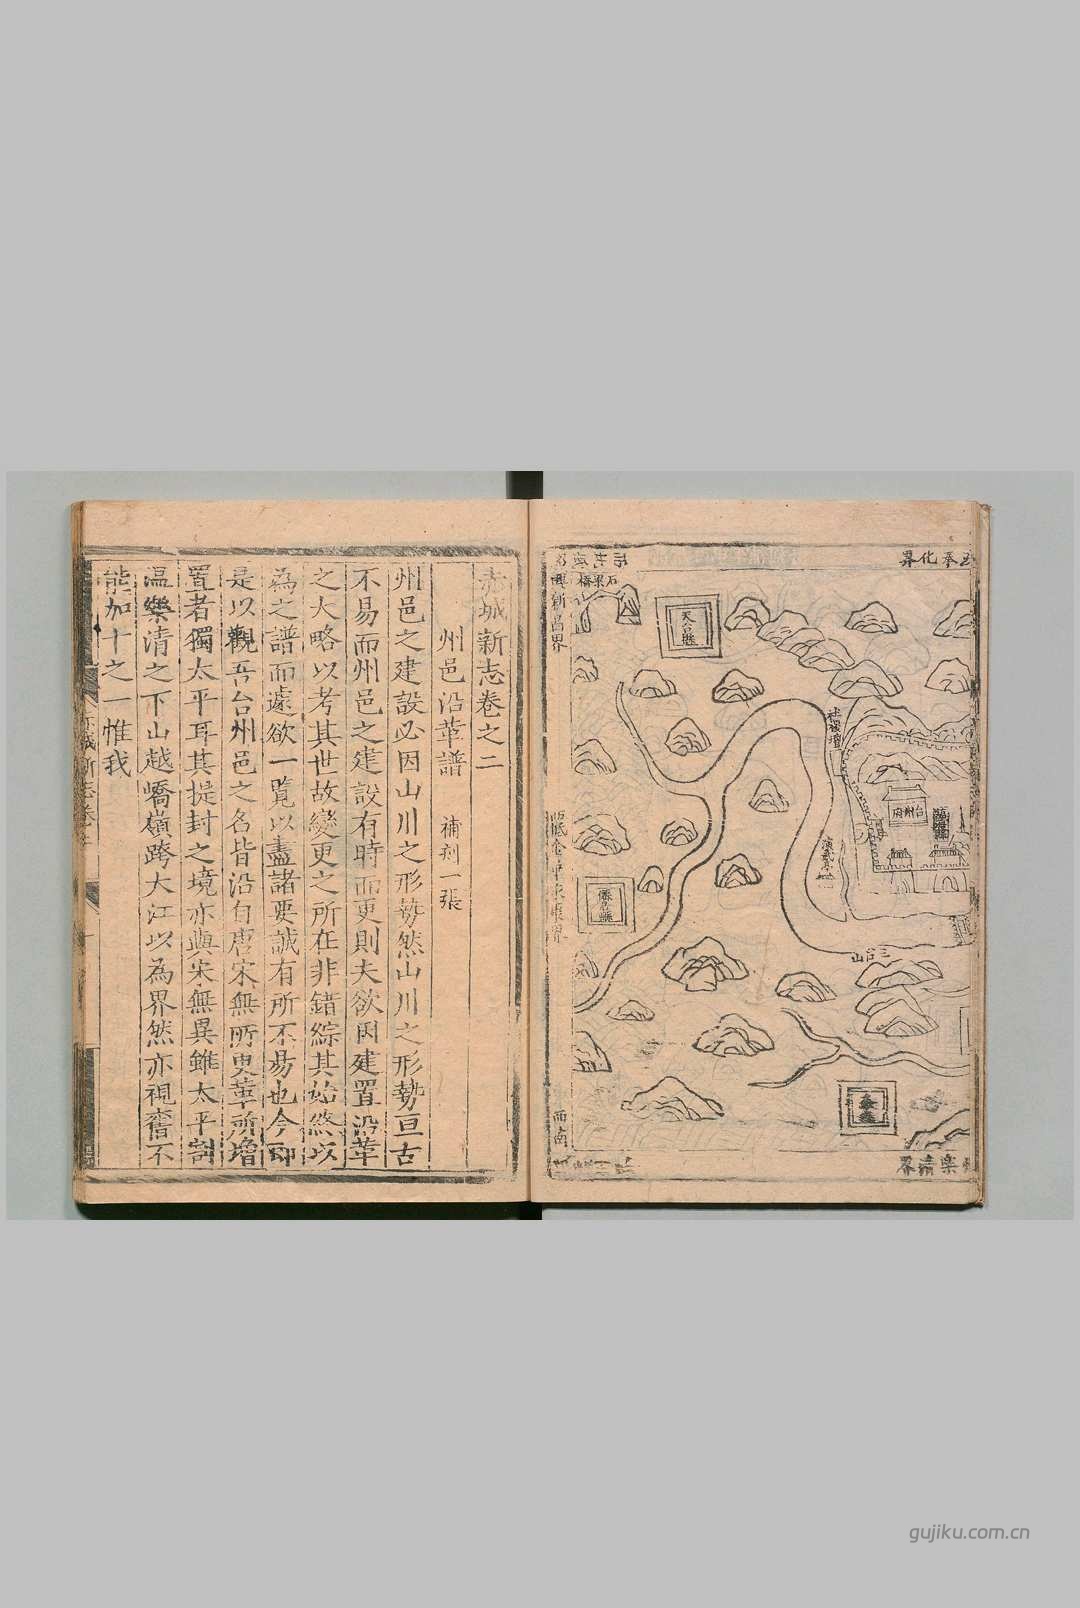 奉化界
石梁橋
新昌界
天台縣
社稷壇
台州府
演武亭
僊居縣
三台山
西南
樂清界
赤城新志卷之二
州邑沿革譜 補刻一張
州邑之建設必因山川之形勢然山川之形勢亘古
不易而州邑之建設有時而更則夫欲因建置沿革
之大略以考其世故變更之所在非錯綜其始終以
為之譜而遽欲一覽以盡諸要誠有所不易也今即
是以觀吾台州邑之名皆沿自唐宋無所更革所增
置者獨太平耳其提封之境亦與宋無異雖太平割
温樂清之下山越嶠嶺跨大江以為界然亦視舊不
能加十之一惟我
gujiku.com.cn